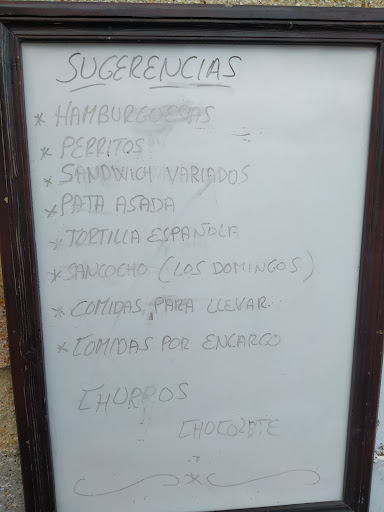 SUGERENCIAS
* HAMBURGUESAS
* PERRITOS
* SANDWICH VARIADOS
* PATA ASADA
* TORTILLA ESPAÑOLA
* SANCOCHO (LOS DOMINGOS)
* COMIDAS PARA LLEVAR
* COMIDAS POR ENCARGO
CHURROS
CHOCOLATE